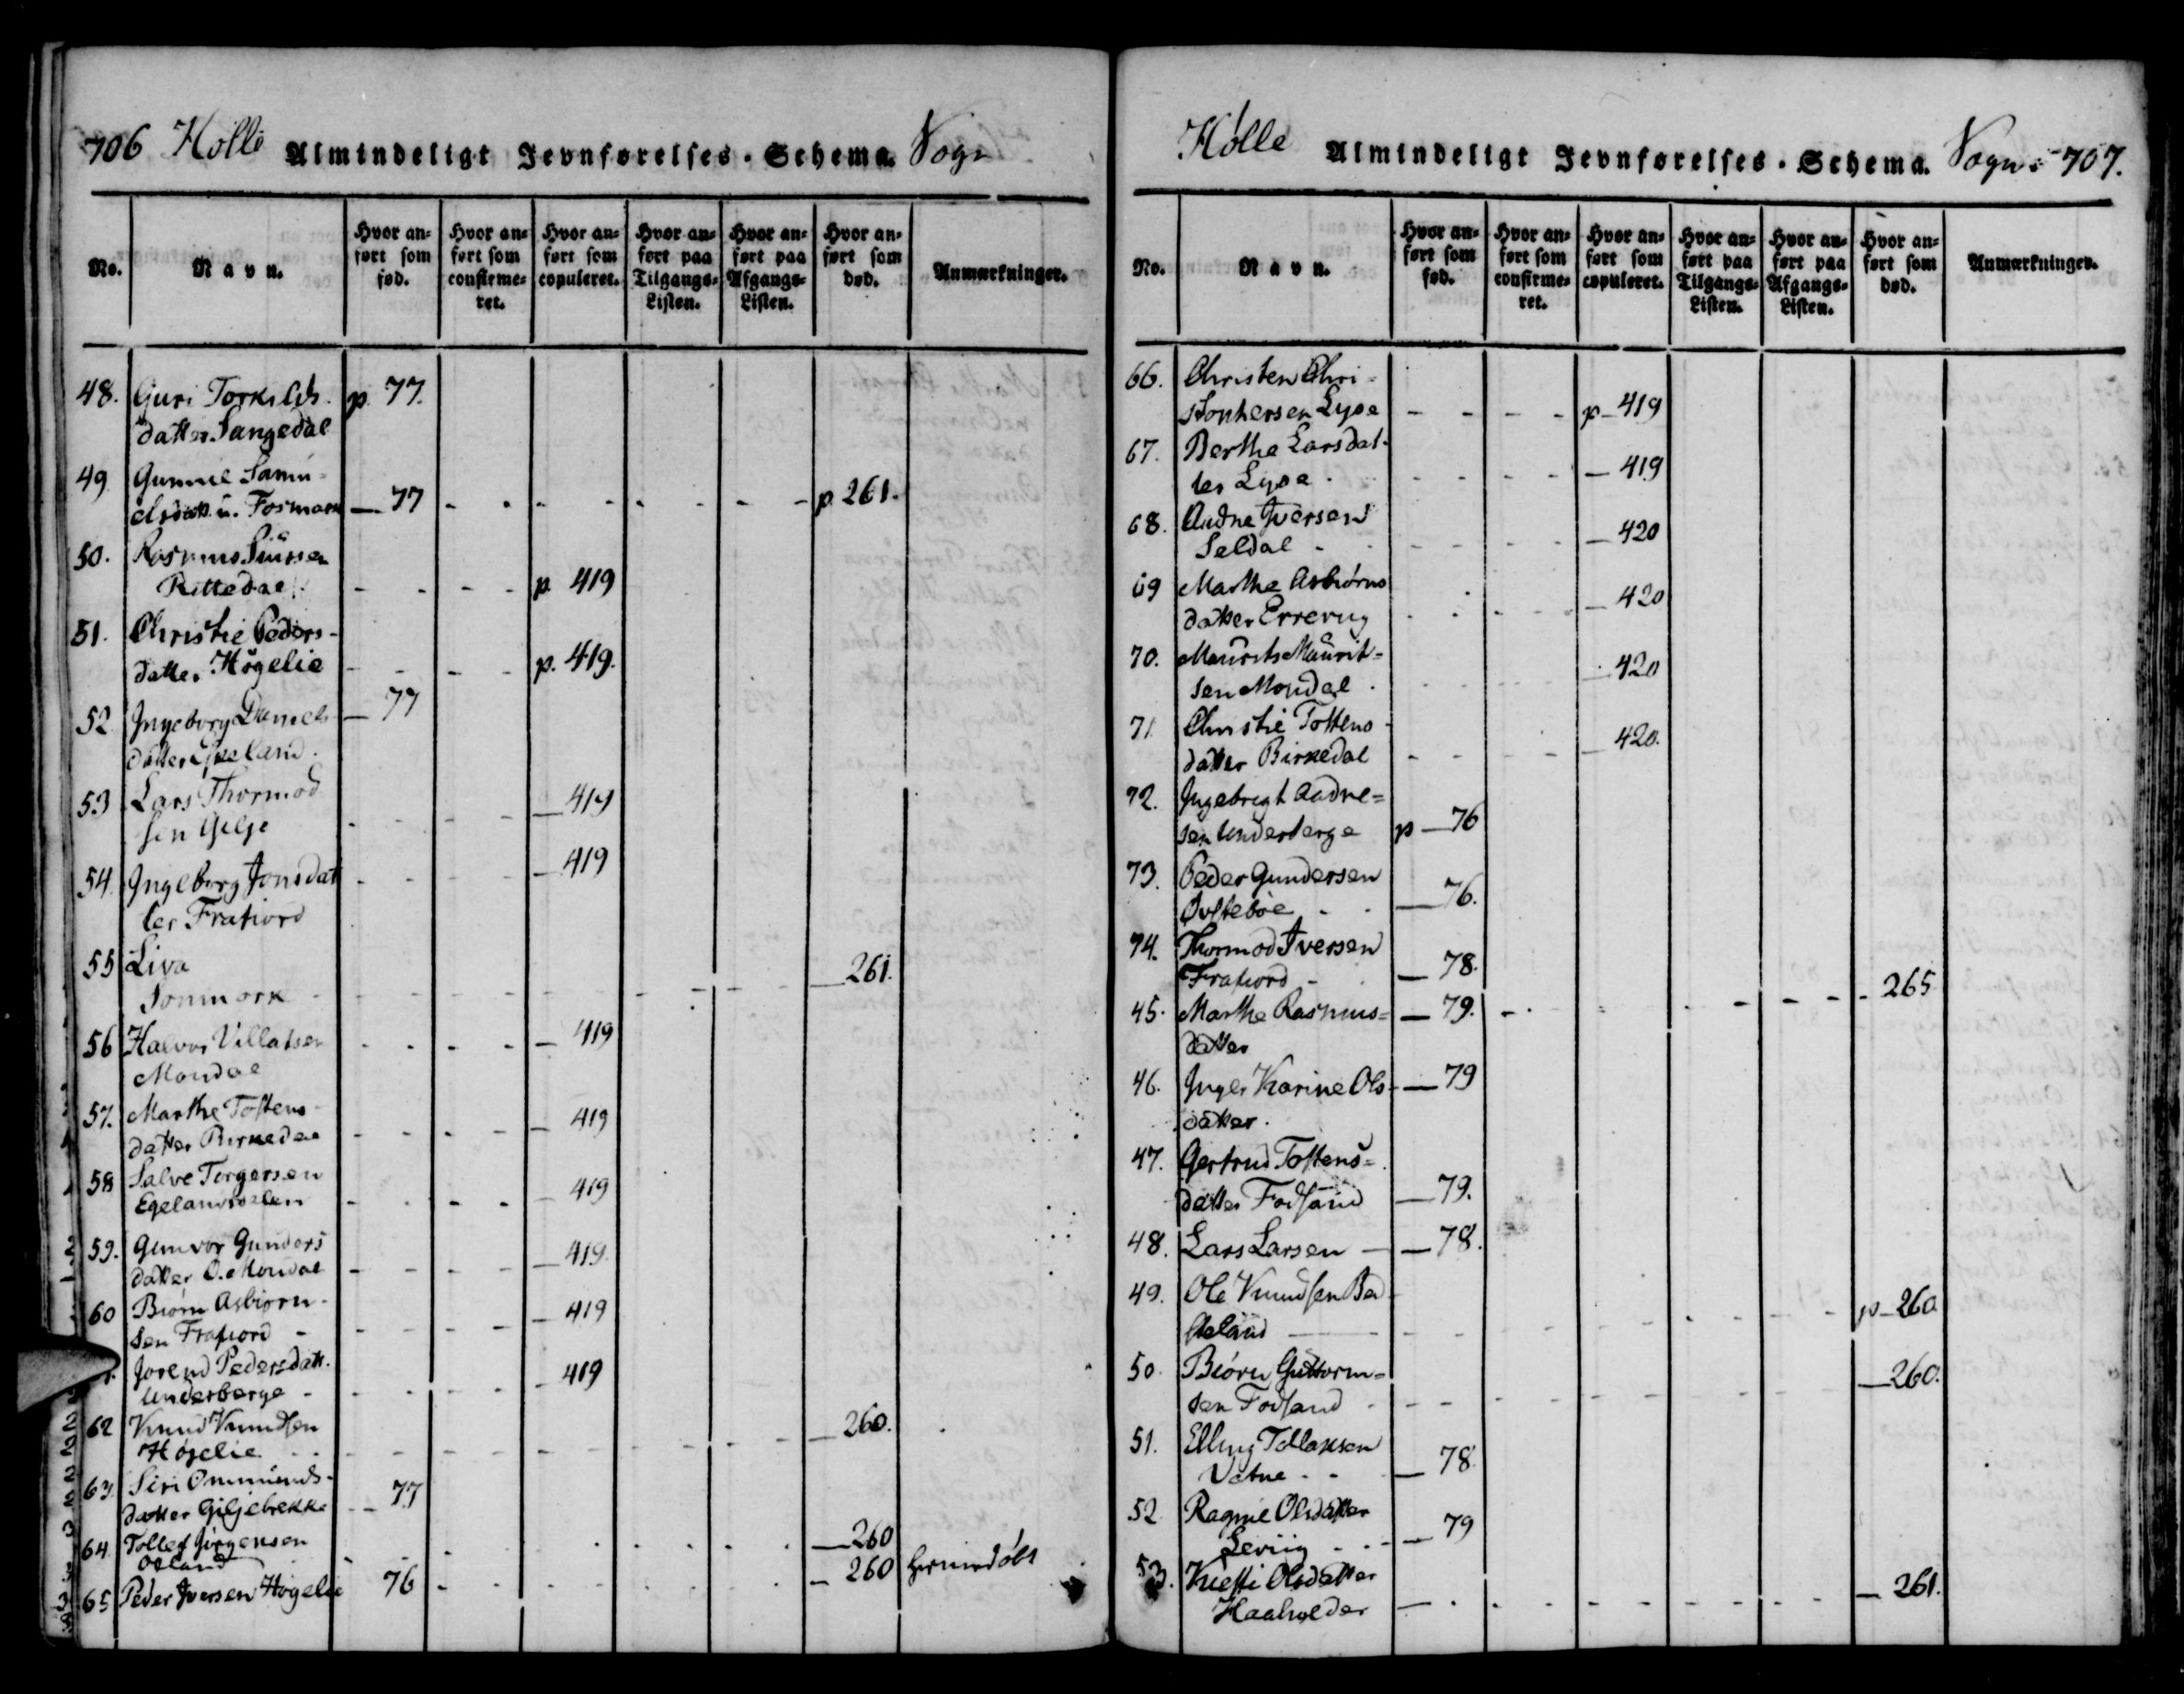 706 Hölle Almindeligt Jevnførelses-Schema. Sogn
No.
Navn.
Hvor anført som fød.
Hvor anført som confirmeret.
Hvor anført som copuleret.
Hvor anført paa Tilgangs-Listen.
Hvor anført paa Afgangs-Listen.
Hvor anført som død.
Anmærkninger.
48. Guri Torkilds- p. 77.
datter Sangedal
49 Gunnil Samu-
elsdatt. u. Fosmark — 77 - - - - - - - p. 261.
50. Rasmus
Rettedal - - - - p. 419
51. Christie Peders-
datter Högelie - - - - p. 419.
52 Ingeborg Daniels- — 77
datter Espeland.
53 Lars Thormod — 419
sen Gilje - - - -
54. Ingeborg Jonsdat - - - - — 419
ter Frafiord
55 Siva — 261.
- - - - - - - -
56 Halvor Villatsen - - - - — 419
Mondal
57. Marthe Tostens-
datter Birkedal - - - - — 419
58 Salve Torgersen
Egelandsdalen - - - - — 419
59. Gunvor Gunders
datter O. Mondal - - - - — 419.
60 Biørn Asbiørn-
sen Frafiord - - - - - — 419
Jorend Pedersdatt.
Underberge - - - - - — 419
62 Knud Knudsen
Høgelie - - - - - - - - — 260.
63. Siri Ommunds-
datter Giljebrekke — 77
64. Tollef Jörgensen — 260
Osland
65 Peder Iversen Högelie 76 - - - - - - - — 260 hiemedøbt
Hölle Almindeligt Jevnførelses-Schema. Sogn 707.
No.
Navn.
Hvor anført som fød.
Hvor anført som confirmeret.
Hvor anført som copuleret.
Hvor anført paa Tilgangs-Listen.
Hvor anført paa Afgangs-Listen.
Hvor anført som død.
Anmærkninger.
66. Christen Chri-
stophersen Lyse - - - - p — 419
67. Berthe Larsdat-
ter Lyse - - - - — 419
68. Audne Iversen
Seldal - - - - - — 420
69 Marthe Asbiörns
datter Errevig - - - - — 420
70. Maurits Maurit-
sen Mondal - - - - — 420
71 Christie Tostens-
datter Birkedal - - - - — 420.
72. Ingebrigt Aadne-
sen Underberge p — 76
73. Peder Gundersen
Øvstebøe - - — 76.
74. Thormod Iversen
Frafiord - — 78.
45. Marthe Rasmus- — 79. - - - - - - - 265
datter
46. Inger Karine Ols- — 79
datter.
47. Gertrud Tostens-
datter Fossand — 79.
48. Lars Larsen — — 78.
49. Ole Knudsen Ber
geland — - - - - - - - - p — 260
50. Biörn Guttorm-
sen Fossand - - - - - - - - — 260.
51. Elling Tollaksen
Vatne - - — 78.
52 Ragnil Olsdatter
Levüg - - - — 79
53. Kiesti Olsdatter
Haahelder — - - - - - - - — 261.